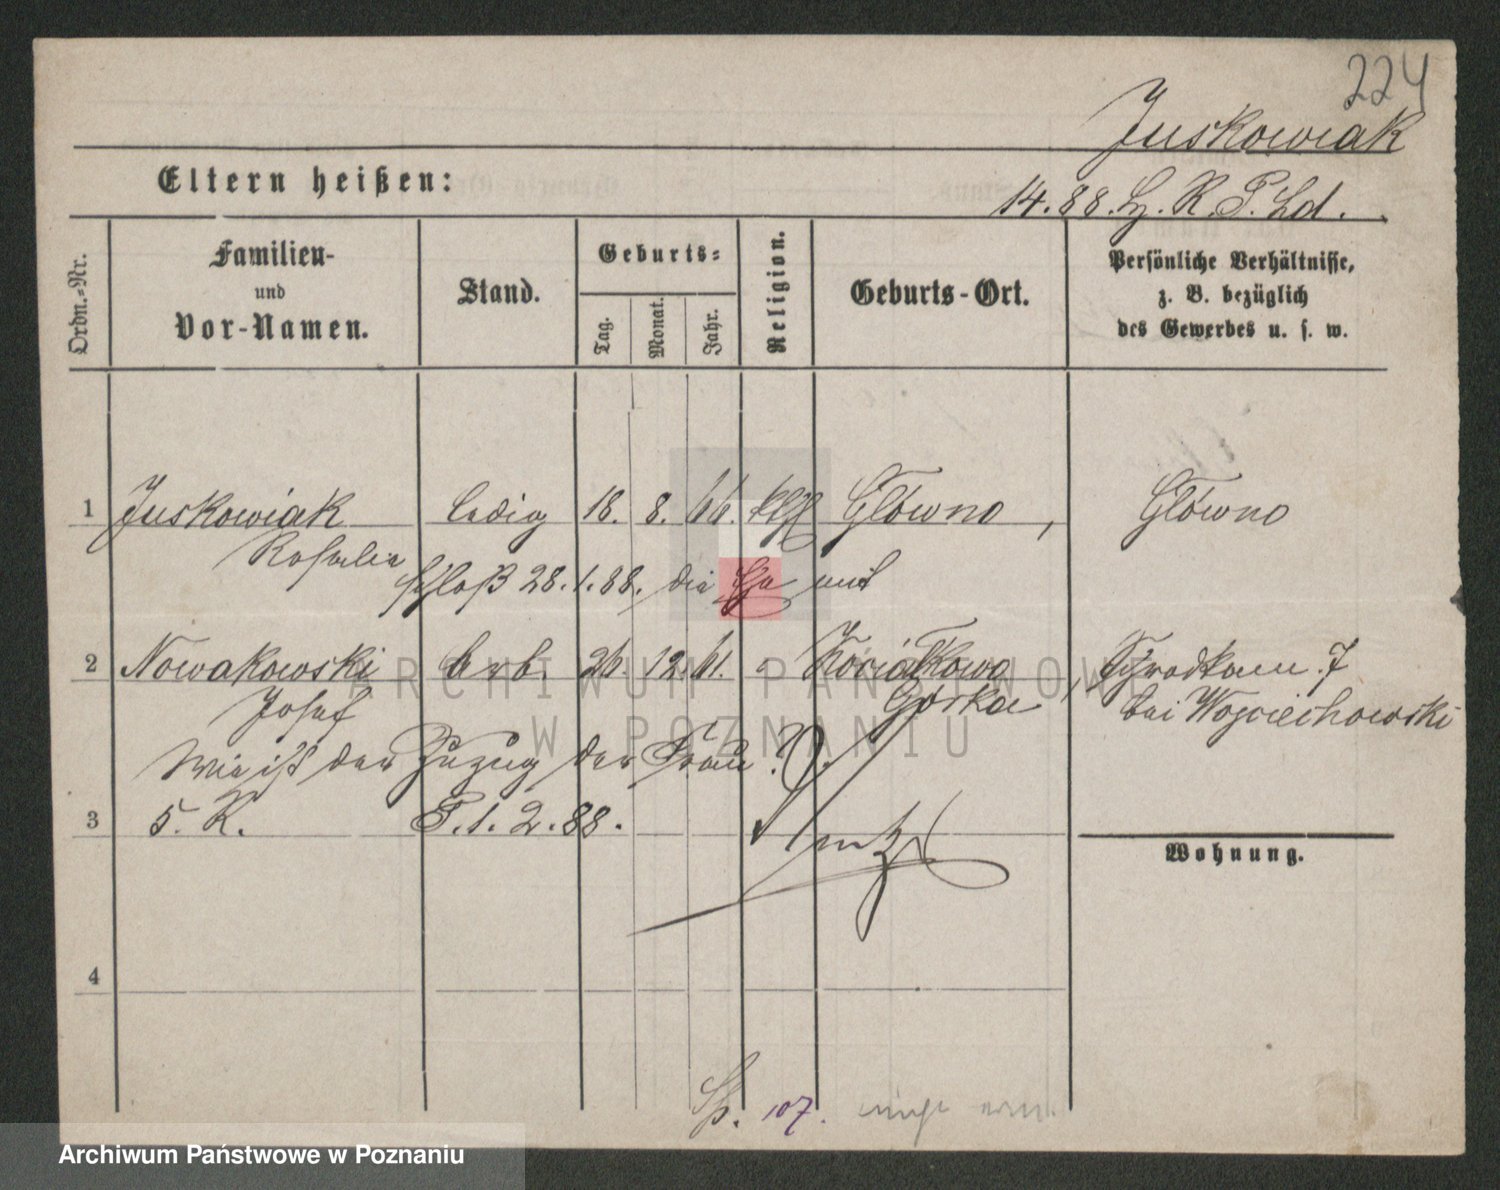 224
Juskowiak
Eltern heißen:
14.88. R. P. Ld.
Ordn.=Nr.
Familien-
und
Vor-Namen.
Stand.
Geburts=
Tag.
Monat.
Jahr.
Religion.
Geburts-Ort.
Persönliche Verhältnisse,
z. B. bezüglich
des Gewerbes u. s. w.
1 Juskowiak ledig 18. 8. 66. kth Glówno, Glówno
Rosalia
schloß 28.1.88. die Ehe mit
2 Nowakowski Arb. 26. 12. 61. "
Josef Górka bei Wojciechowski
Wie ist der Zuzug der Frau?
3 5. R. P. 1. 2. 88.
Wohnung.
4
107.
ARCHIWUM PAŃSTWOWE
W POZNANIU
Archiwum Państwowe w Poznaniu